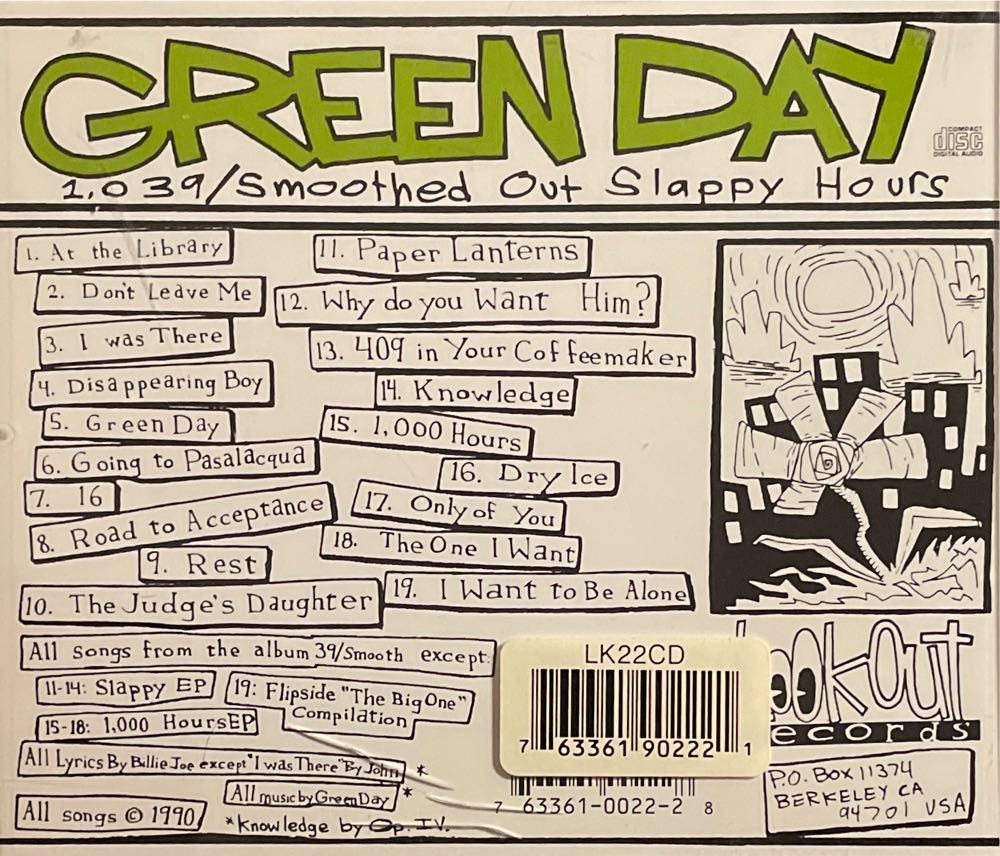 GREEN DAY
COMPACT
disc
DIGITAL AUDIO
1,039/Smoothed Out Slappy Hours
1. At the Library
2. Don't Leave Me
3. I was There
4. Disappearing Boy
5. Green Day
6. Going to Pasalacqua
7. 16
8. Road to Acceptance
9. Rest
10. The Judge's Daughter
11. Paper Lanterns
12. Why do you Want Him?
13. 409 in Your Coffeemaker
14. Knowledge
15. 1,000 Hours
16. Dry Ice
17. Only of You
18. The One I Want
19. I Want to Be Alone
All songs from the album 39/Smooth except:
11-14: Slappy EP
15-18: 1,000 Hours EP
19: Flipside "The Big One"
Compilation
All Lyrics By Billie Joe except "I was There" By John *
All music by Green Day *
All songs © 1990
*Knowledge by Op. IV.
LK22CD
7 63361 90222 1
7 63361-0022-2 8
lookout
records
P.O. Box 11374
BERKELEY CA
94701 USA